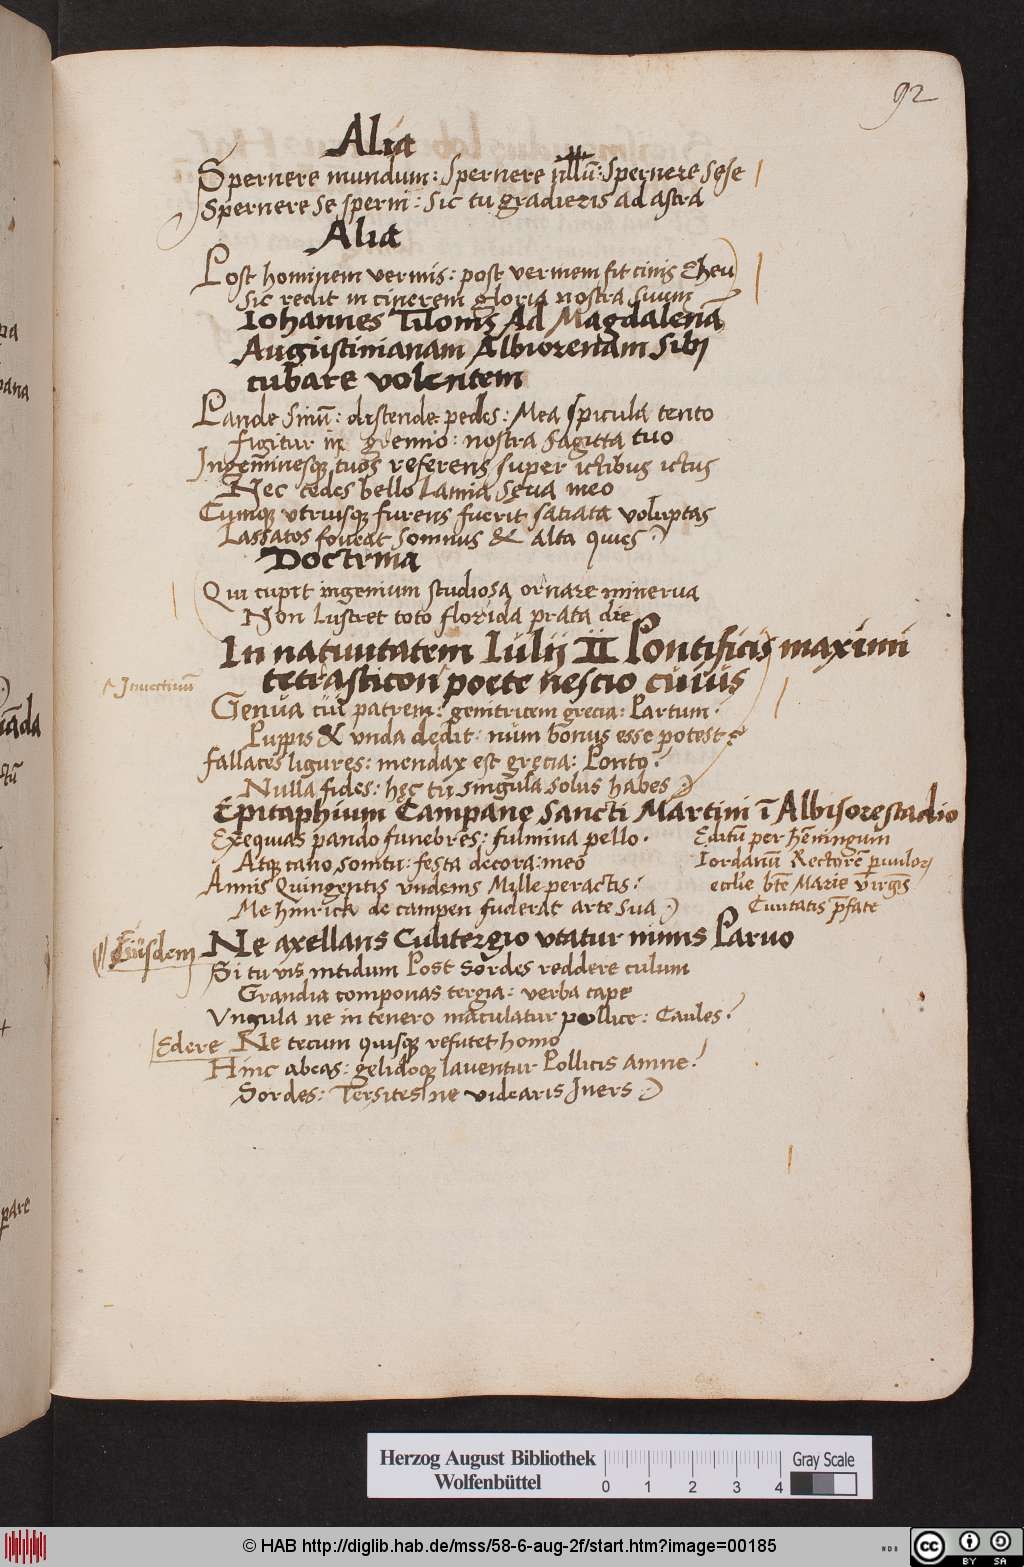 92
Alia
Spernere mundum: spernere nullū: spernere sese
Spernere se sperni: sic tu gradieris ad astra
Alia
Post hominem vermis: post vermem fit cinis Eheu
Sic redit in cinerem gloria nostra suum
Iohannes Tilonis Ad Magdalenā
Augustinianam Albiorenam Sibj
cubare volentem
Pande Sinū: distende pedes: Mea spicula tento
figitur in gremio: nostra sagitta tuo
Ingeminesq tuos referens super ictibus ictus
Nec cedes bello Lamia seua meo
Cumq vtriusq furens fuerit satiata voluptas
Lassatos foueat somnus & alta quies
Doctrina
Qui cupit ingenium studiosa ornare minerua
Non Lustret toto florida prata die
In natiuitatem Iulij II Pontificis maximi
tetrasticon poete nescio cuius
Inuectiuū
Genua cui patrem: genitricem grecia: Partum
Puppis & vnda dedit: num bonus esse potest
fallaces ligures: mendax est grecia: Ponto
Nulla fides: hęc tu singula solus habes
Epitaphium Campane Sancti Martini ī Albisorestadio
Exequias pando funebres: fulmina pello
Atq cano sonitu: festa decora: meo
Annis Quingentis vndenis Mille peractis
Me hinrick de campen fuderat arte sua
Editū per hēningum
Iordanū Rectorē
eclie bte Marie virgīs
Ciuitatis pfate
Eiusdem Ne axellans Culitergio vtatur nimis Paruo
Si tu vis nitidum Post Sordes reddere culum
Grandia componas tergia: verba cape
Vngula ne in tenero maculatur pollice: Caules
Edere Ne tecum quisq refutet homo
Hinc abeas: gelidoq lauentur Pollicis amne
Sordes: Tersites ne videaris Iners
pa
pana
pare
Herzog August Bibliothek
Wolfenbüttel
0 1 2 3 4
Gray Scale
© HAB http://diglib.hab.de/mss/58-6-aug-2f/start.htm?image=00185
cc BY SA